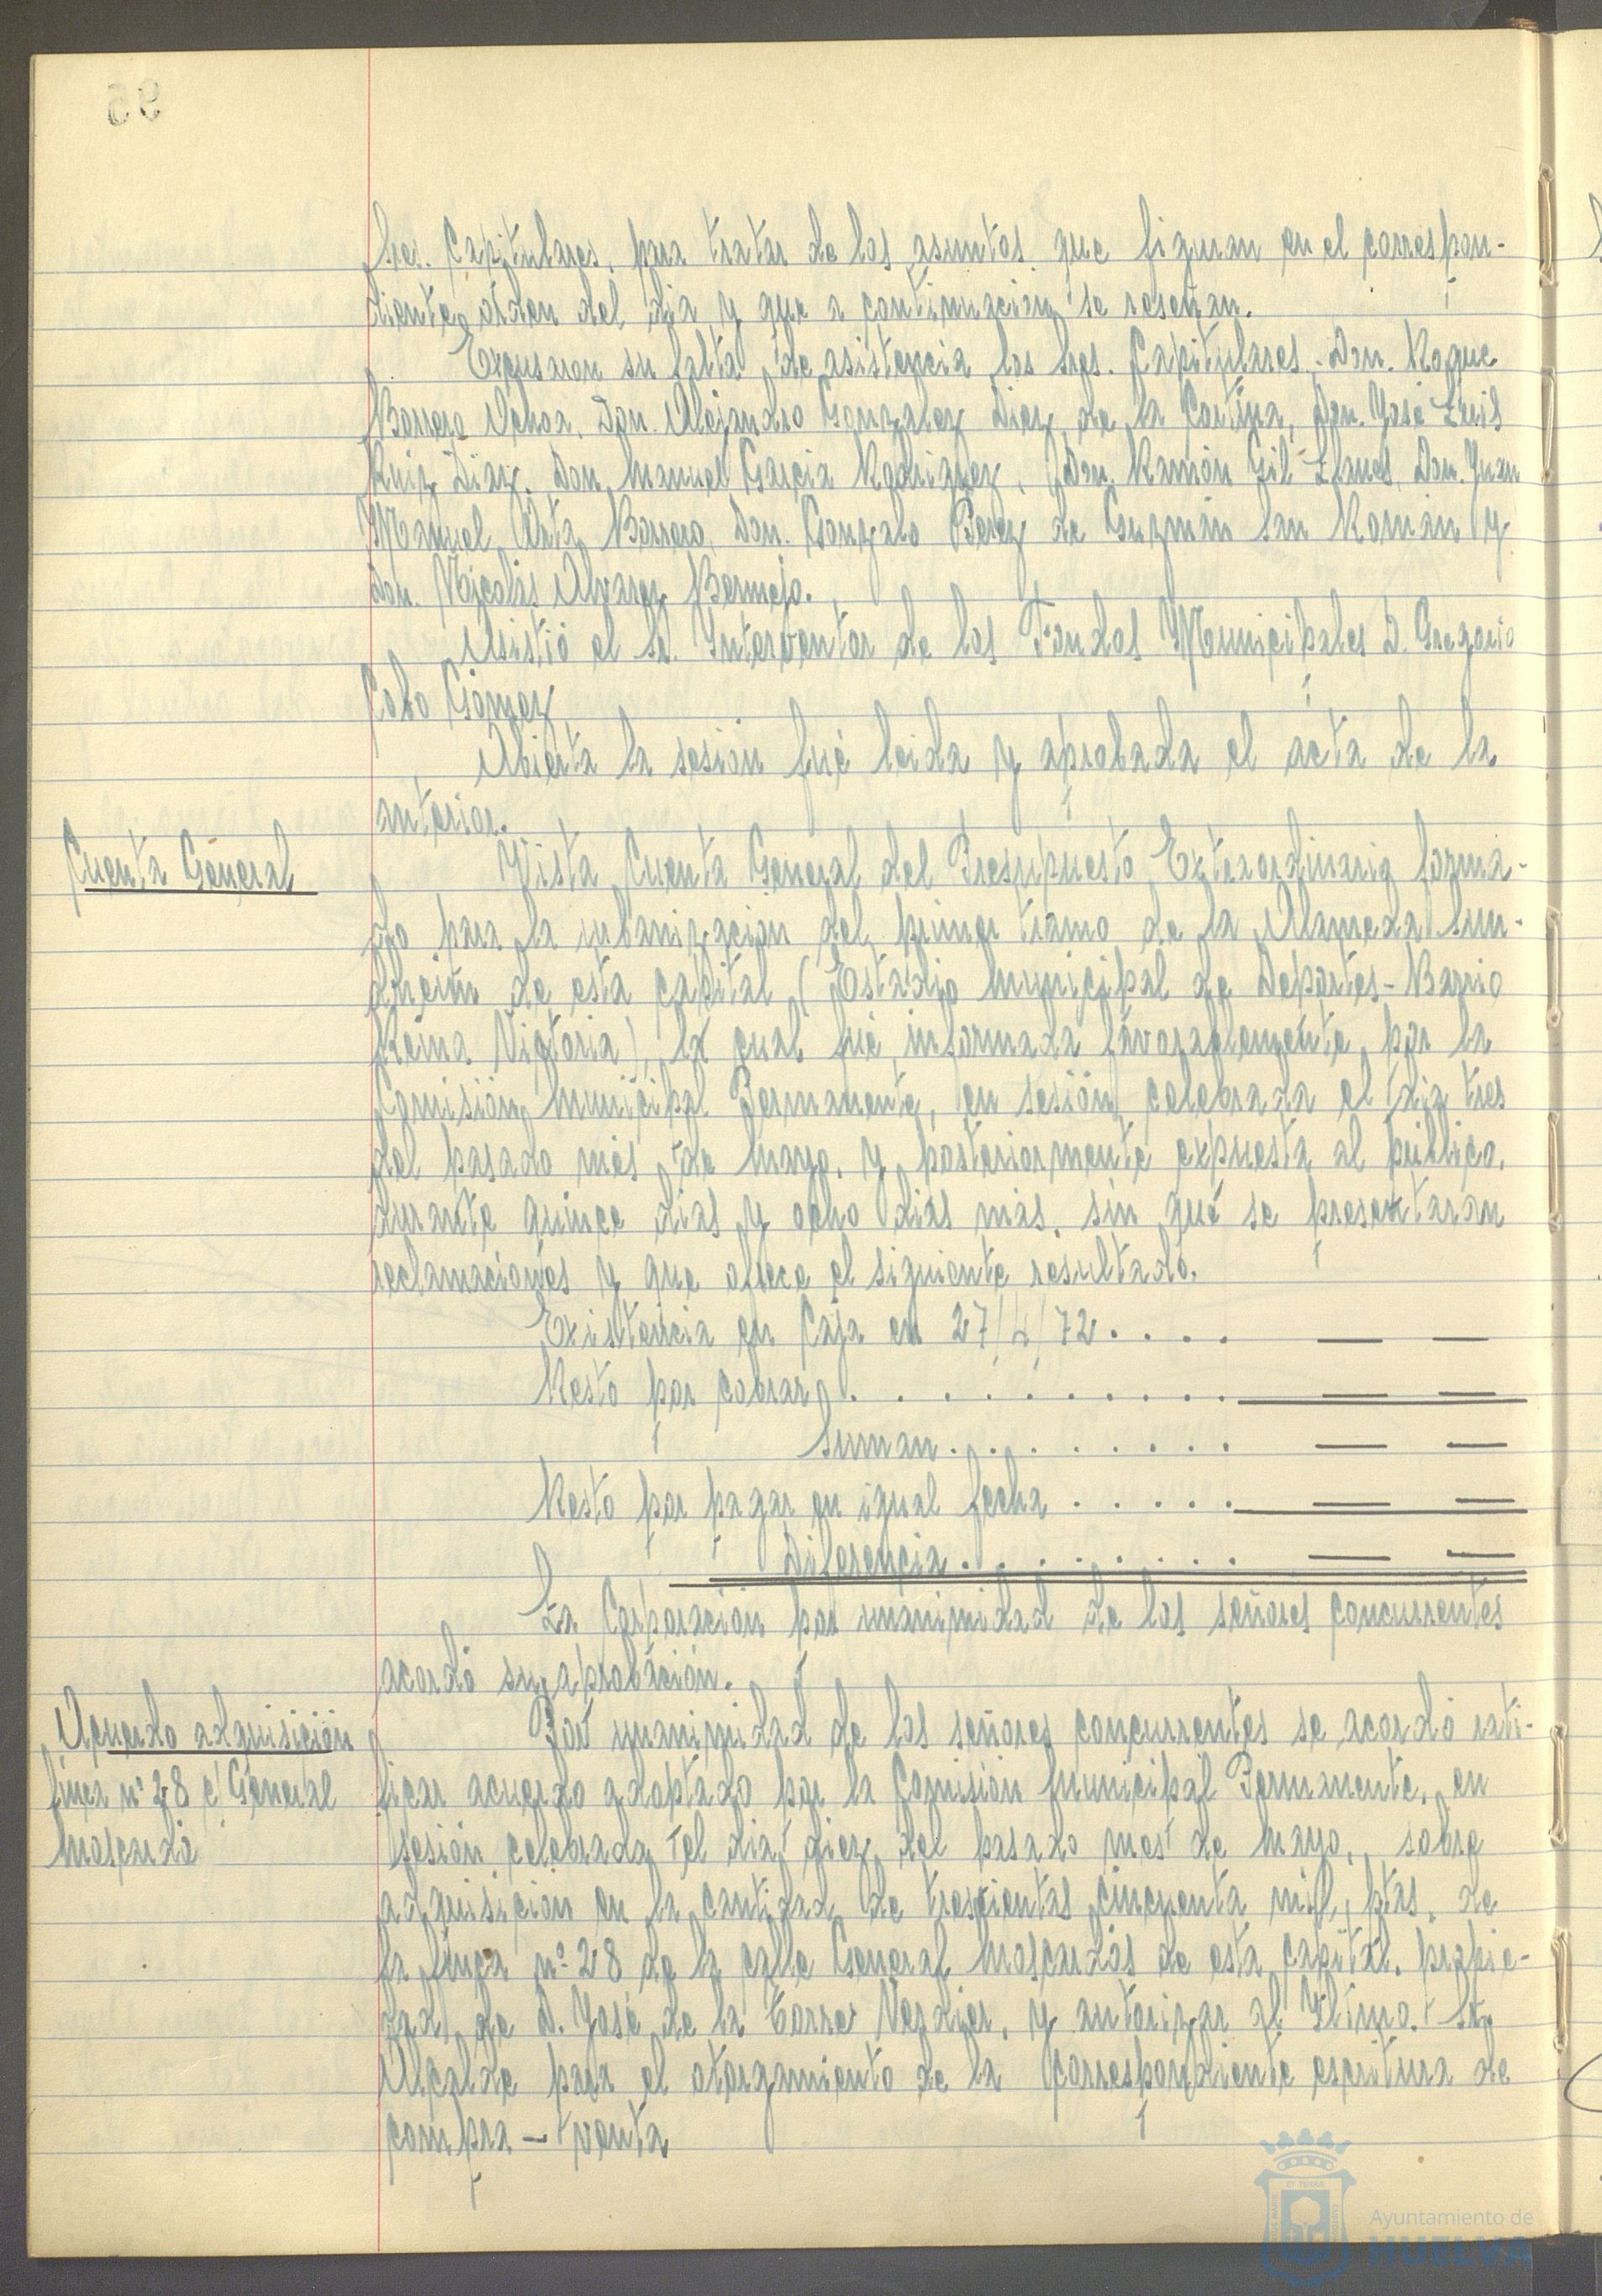 Sres. Capitulares, para tratar de los asuntos que figuran en el correspon-
diente orden del dia y que a continuación se reseñan.
Excusaron su falta de asistencia los Sres. Capitulares - Don. Roque
Borrero Ochoa, Don. Alejandro Gonzalez Diez de la Cortina, Don. José Luis
Ruiz Diaz, Don Manuel Garcia Rodriguez, Don. Ramón Gil Llanes, Don. Juan
Manuel Anta Borrero, Don. Gonzalo Perez de Guzmán San Román y
Don. Nicolás Alvarez Bermejo.
Asistió el Sr. Interventor de los Fondos Municipales D. Gregorio
Cobo Gómez
Abierta la sesión fué leida y aprobada el acta de la
anterior.
Cuenta General
Vista Cuenta General del Presupuesto Extraordinario forma-
do para la urbanización del primer tramo de la Alameda Sun-
dheim de esta capital (Estadio Municipal de Deportes - Barrio
Reina Victoria), la cual fué informada favorablemente, por la
Comisión Municipal Permanente, en sesión celebrada el dia tres
del pasado mes de Mayo, y posteriormente expuesta al público,
durante quince dias y ocho dias más, sin que se presentaran
reclamaciones y que ofrece el siguiente resultado.
Existencia en Caja en 27/4/72 . . . . — —
Resto por cobrar . . . . . . . . . . — —
Suman . . . . . . . . — —
Resto por pagar en igual fecha . . . . . — —
Diferencia . . . . . . . . — —
La Corporación por unanimidad de los señores concurrentes
acordó su aprobación.
Acuerdo adquisición
finca nº 28 c/ General
Moscardó
Por unanimidad de los señores concurrentes se acordó rati-
ficar acuerdo adoptado por la Comisión Municipal Permanente, en
sesión celebrada el dia diez del pasado mes de Mayo, sobre
adquisición en la cantidad de trescientas cincuenta mil, ptas. de
la finca nº 28 de la calle General Moscardós de esta capital, propie-
dad de D. José de la Torre Verdier, y autorizar al Iltmo. Sr.
Alcalde para el otorgamiento de la correspondiente escritura de
compra - venta
Ayuntamiento de
HUELVA